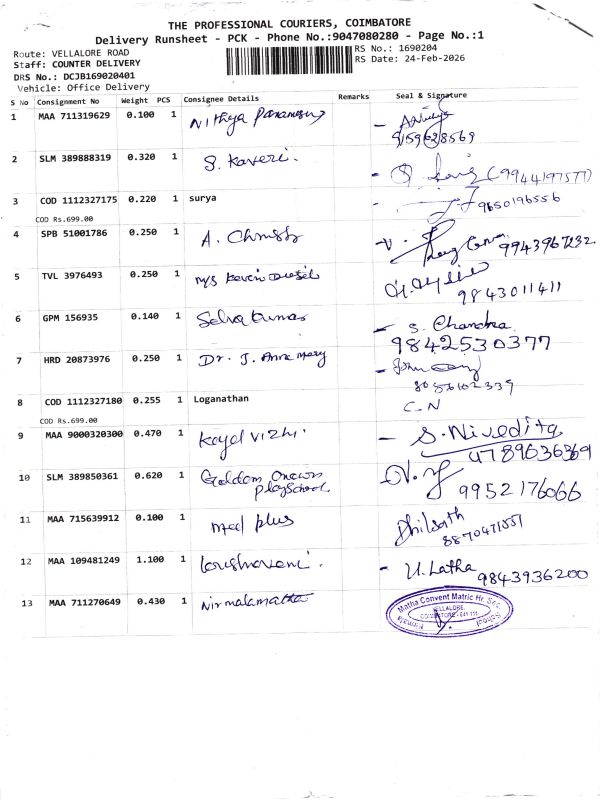 THE PROFESSIONAL COURIERS, COIMBATORE
Delivery Runsheet - PCK - Phone No.:9047080280 - Page No.:1
Route: VELLALORE ROAD
RS No.: 1690204
Staff: COUNTER DELIVERY
RS Date: 24-Feb-2026
DRS No.: DCJB169020401
Vehicle: Office Delivery
S No Consignment No Weight PCS Consignee Details Remarks Seal & Signature
1 MAA 711319629 0.100 1 Nithya
9159628569
2 SLM 389888319 0.320 1 S. Kaveri.
(9944197577)
3 COD 1112327175 0.220 1 surya
9650196556
COD Rs.699.00
4 SPB 51001786 0.250 1 A.
9943967232
5 TVL 3976493 0.250 1 M/s Kevin Diesel
9843011411
6 GPM 156935 0.140 1 Selvakumar
- S. Chandra
9842530377
7 HRD 20873976 0.250 1 Dr. J. Anne Mary
8 COD 1112327180 0.255 1 Loganathan
C-N
COD Rs.699.00
9 MAA 9000320300 0.470 1 Kayal vizhi.
- S. Nivedita
10 SLM 389850361 0.620 1
Playschool
9952176066
11 MAA 715639912 0.100 1 Med plus
12 MAA 109481249 1.100 1
- U. Latha 9843936200
13 MAA 711270649 0.430 1 Nirmalamatha
Nirmala Matha Convent Matric Hr. Sec. School
VELLALORE,
COIMBATORE - 641 111